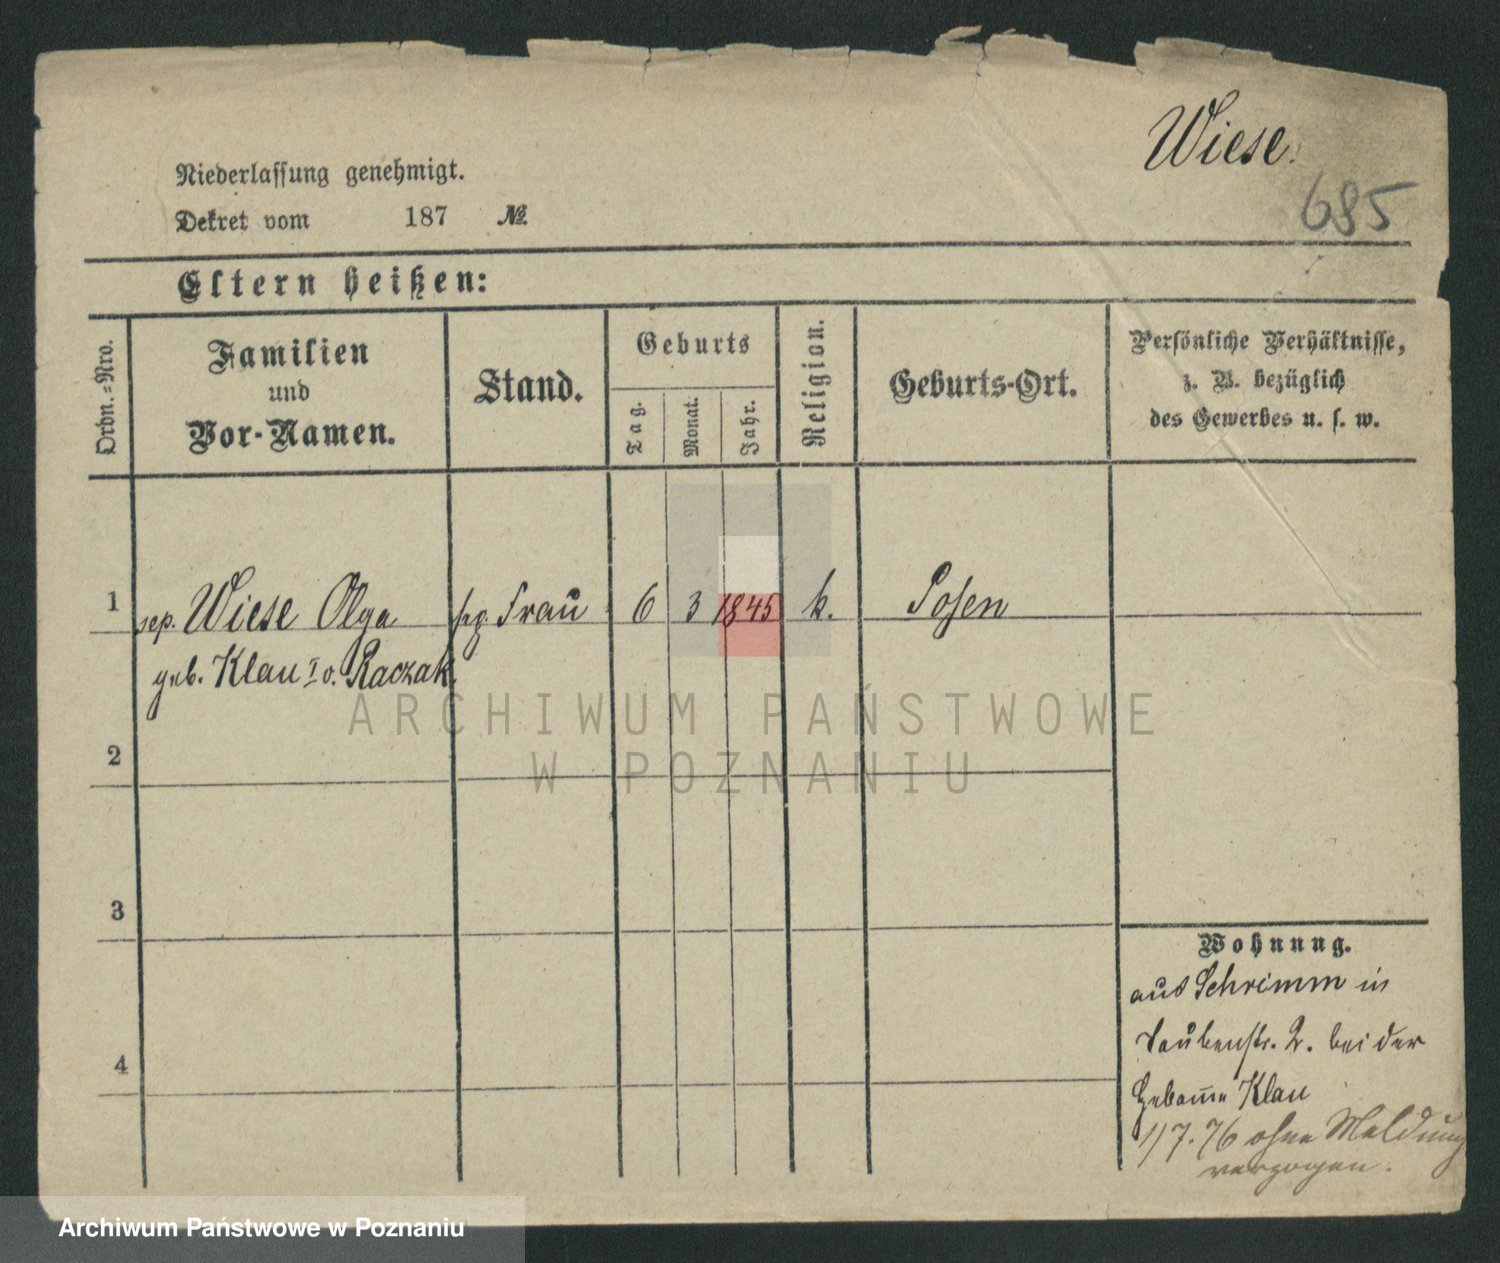 Wiese.
685
Niederlassung genehmigt.
Dekret vom 187 №
Eltern heißen:
Ordn.-Nro.
Familien
und
Vor-Namen.
Stand.
Geburts
Tag.
Monat.
Jahr.
Religion.
Geburts-Ort.
Persönliche Verhältnisse,
z. B. bezüglich
des Gewerbes u. s. w.
1 sep. Wiese Olga Frau 6 3 1845 k. Posen
geb. Klau I v. Raczak.
ARCHIWUM PAŃSTWOWE
W POZNANIU
2
3
4
Wohnung.
aus Schrimm in
Taubenstr. 2. bei der
Hebamme Klau
1/7.76 ohne Meldung
verzogen.
Archiwum Państwowe w Poznaniu